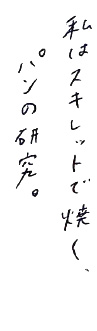 私はスキレットで焼く、
パンの研究。